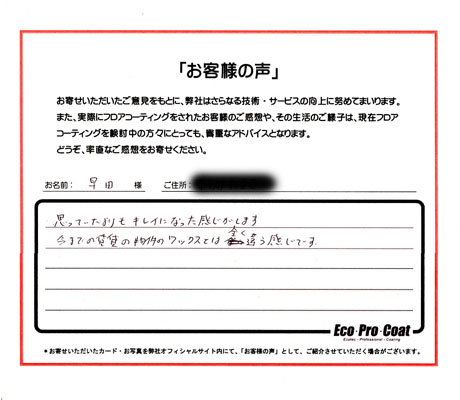 「お客様の声」
お寄せいただいたご意見をもとに、弊社はさらなる技術・サービスの向上に努めてまいります。
また、実際にフロアコーティングをされたお客様のご感想や、その生活のご様子は、現在フロア
コーティングを検討中の方々にとっても、貴重なアドバイスとなります。
どうぞ、率直なご感想をお寄せください。
お名前： 早田 様 ご住所：
思っていたよりもキレイになった感じがします
今までの賃貸の物件のワックスとは全く違う感じです。
Eco・Pro・Coat
Ecolex - Professional - Coating
＊お寄せいただいたカード・お写真を弊社オフィシャルサイト内にて、「お客様の声」として、ご紹介させていただく場合がございます。